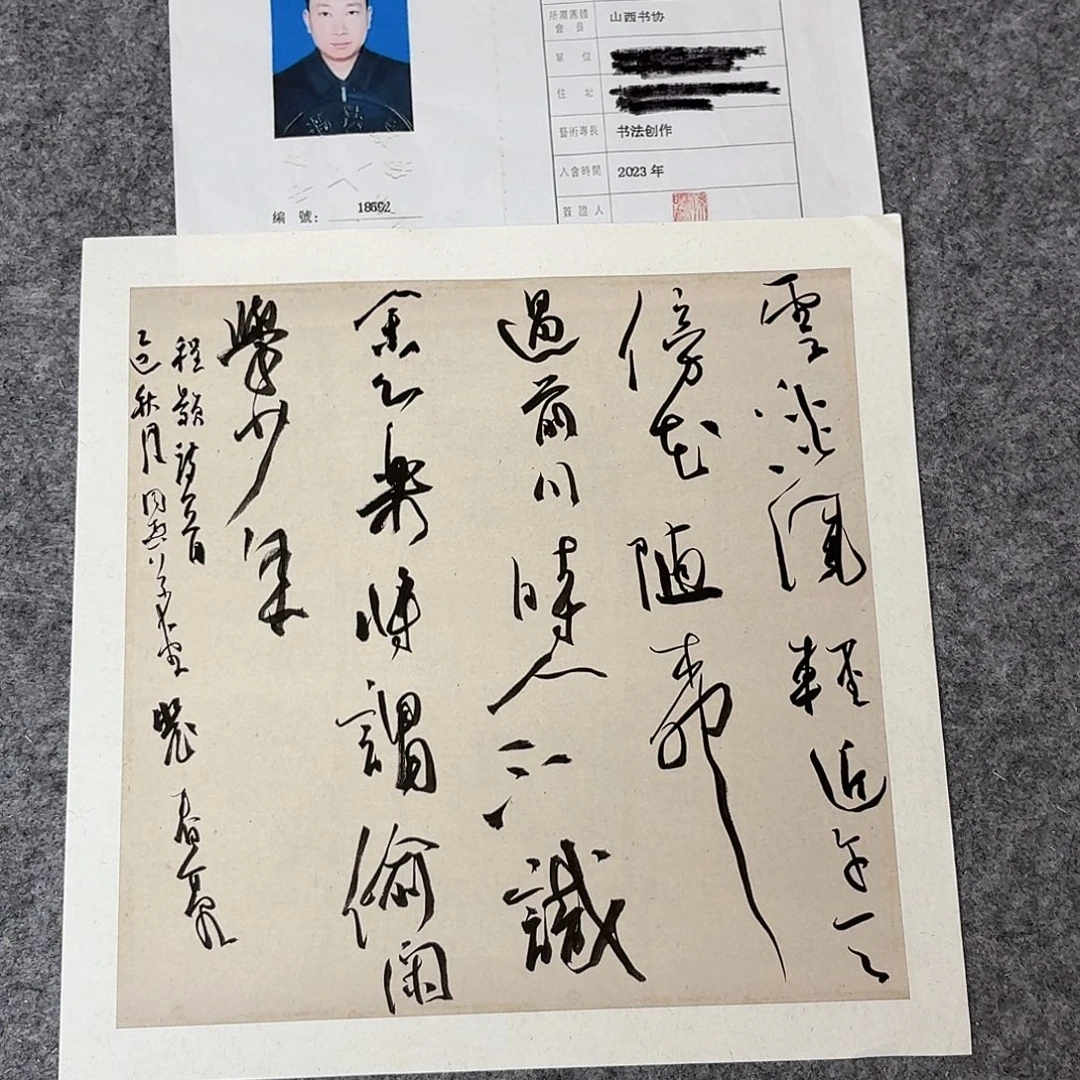 所屬團體會員 山西书协
單位
住址
藝術專長 书法创作
入會時間 2023年
簽證人
編號: 18692
雲淡風輕近午天
傍花隨柳
過前川時人不識
余心樂將謂偷闲
學少年
程颢詩一首
乙巳秋月